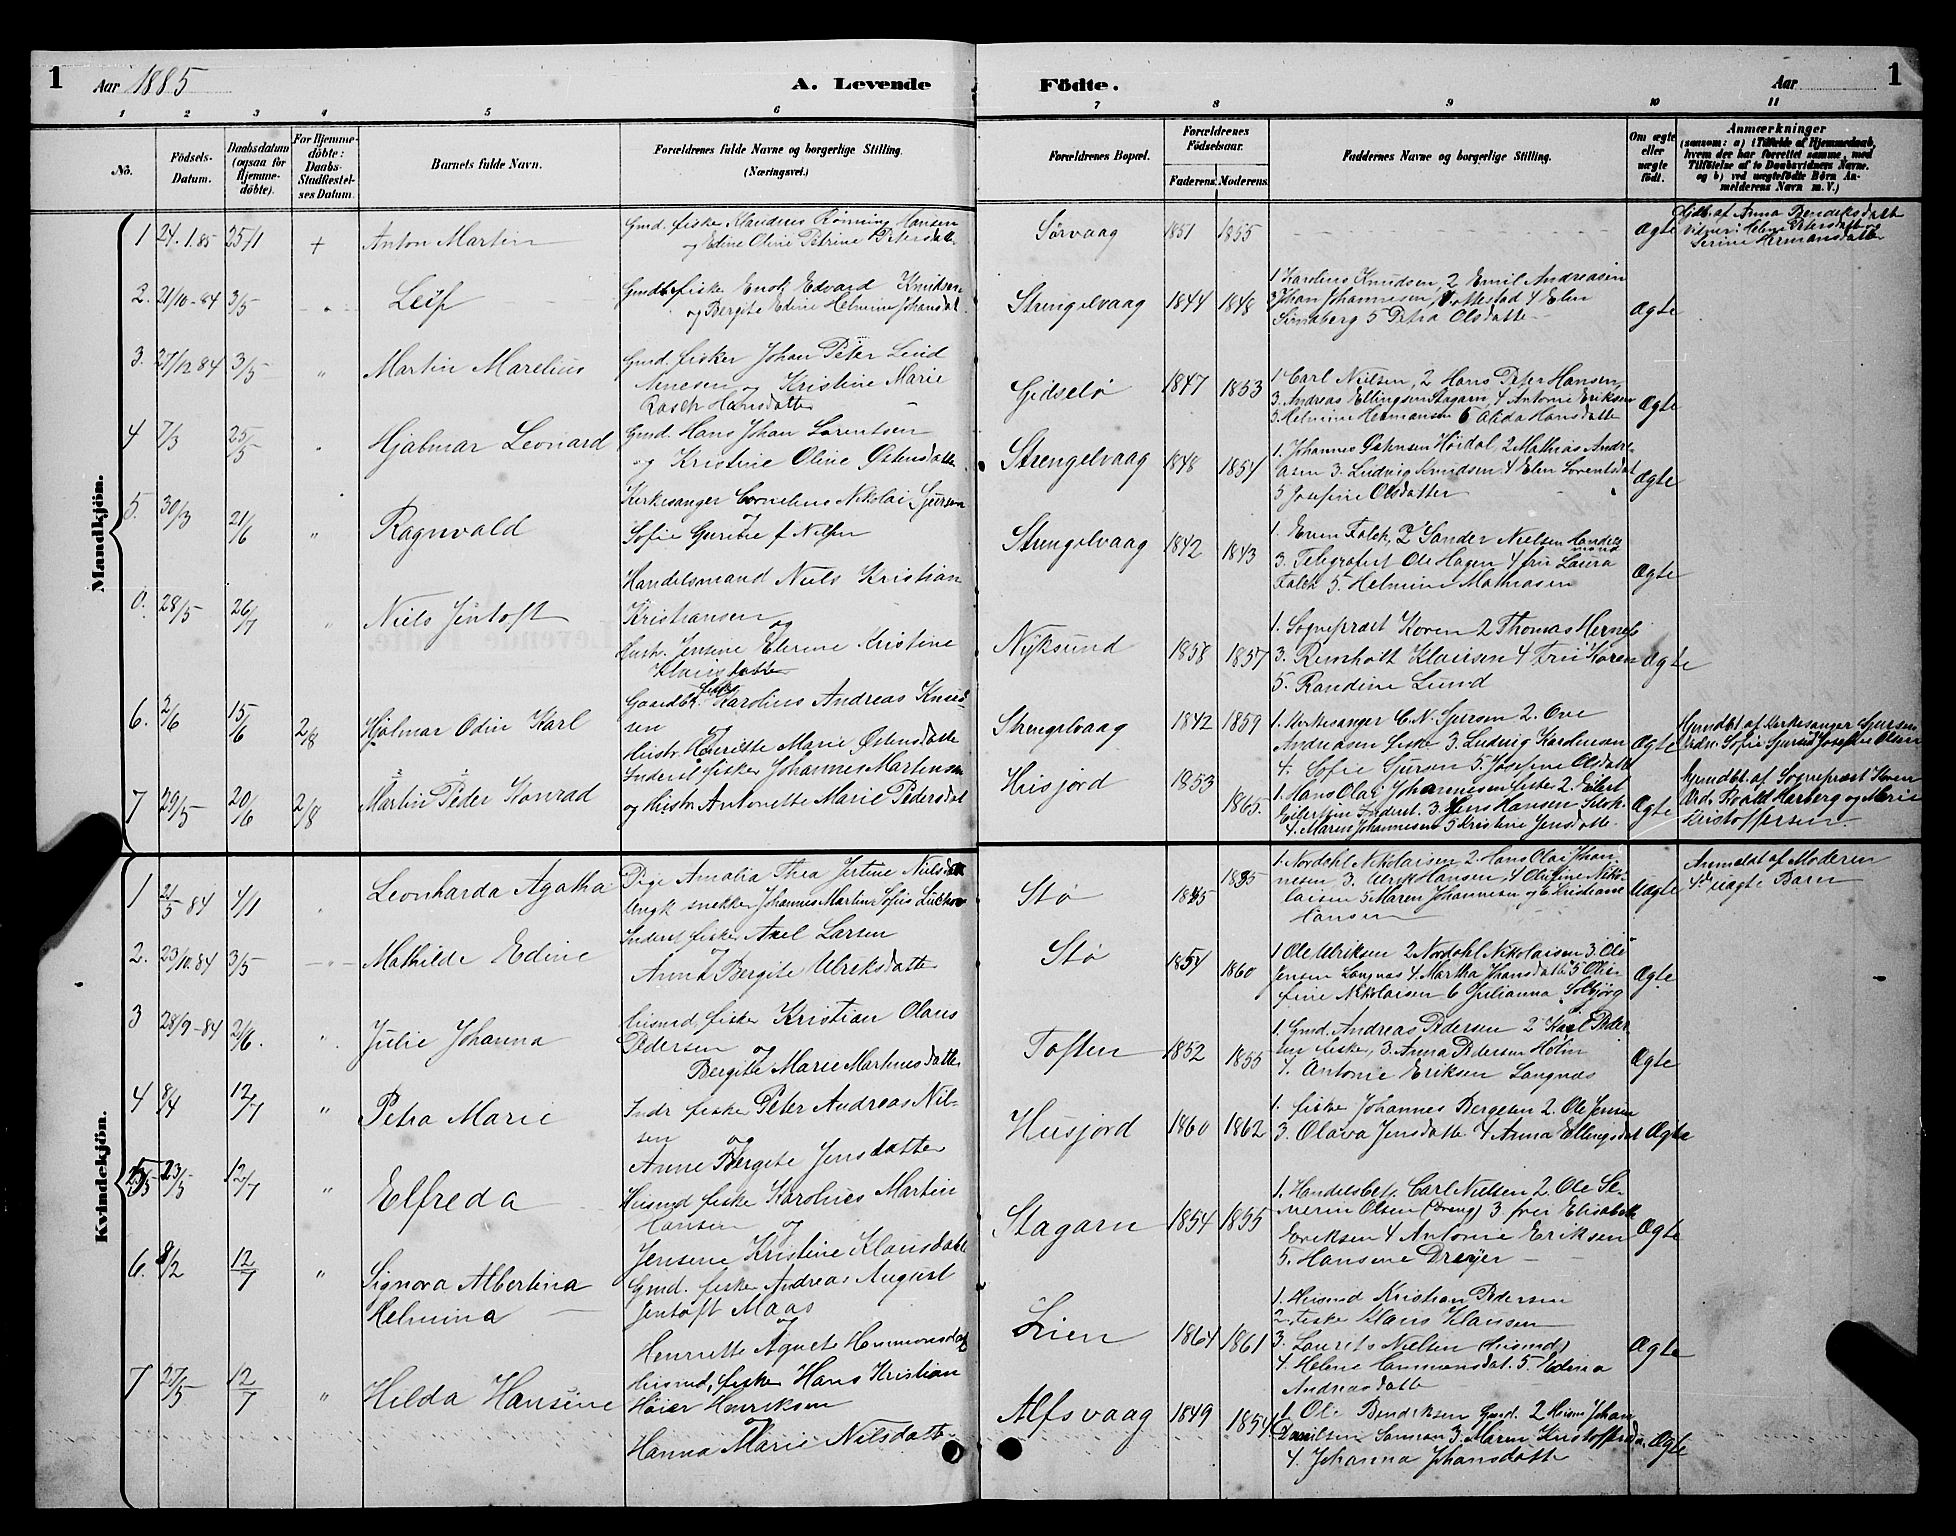 1 Aar 1885 A. Levende Födte. Aar 1
1 2 3 4 5 6 7 8 9 10 11
No.
Födsels-
Datum.
Daabsdatum
(ogsaa for
Hjemme-
döbte).
For Hjemme-
döbte:
Daabs-
Stadfæstel-
ses Datum.
Barnets fulde Navn.
Forældrenes fulde Navne og borgerlige Stilling.
(Næringsvei.)
Forældrenes Bopæl.
Forældrenes
Födselsaar.
Faderens. Moderens.
Faddernes Navne og borgerlige Stilling.
Om ægte
eller
uægte
födt.
Anmærkninger
(saasom: a) i Tilfælde af Hjemmedaab,
hvem der har forrettet samme, med
Tilföielse af to Daabsvidners Navne,
og b) ved uægtefödte Börn An-
melderens Navn m. V.)
Mandkjön.
1 24.1.85 25/1 + Anton Martin
Gmd. fisker Rönning Hansen
og Edine Oline Petrine Petersdatter
Sørvaag 1851 1855 Ægte
Hjdbt. af Anna Bendiksdatter
Vidner: Helene Petersdatter og
Serine Hermansdatter
2. 21/10-84 3/5 Leif
Gmdbr. fisker Enok Edvard Knutsen
og Bergite Edine Helmine Johansdat
Strengelvaag 1844 1848
1 Karolius Knudsen, 2 Emil Andreasen
3 Johan Johannesen 4 Elen
5 Petra Olsdatter
Ægte
3. 27/12 84 3/5 " Martin Marelius
Gmd. fisker Johan Peter Lind
Arnesen og Kristine Marie
Rasch Hansdatter
Gidselø 1847 1853
1 Carl Nielsen, 2 Hans Peter Hansen,
3. Andreas Ellingsen Stagarn, 4 Antonie Eriksen
5. Helmine Hermansen 6 Alida Hansdatter
Ægte
4 7/3 25/5 " Hjalmar Leonard
Gmd. Hans Johan Lorentsen
og Kristine Oline Østensdatter
Strengelvaag 1848 1854
1. Johannes Hørdal, 2 Mathias Andre-
asen 3. Ludvig Knudsen 4 Elen Lorentsdat
5 Josefine Olsdatter
Ægte
5. 30/3 21/6 " Ragnvald
Kirkesanger Cornelius Nikolai Sjursen
og
Sofie Gurine f Nilsen
Strengelvaag 1842 1843
1. Even Falch, 2 Sander Nielsen Handels
mand
3. Telegrafist Ole Hagen 4 fru Laura
Falch 5. Helmine Mathiasen
Ægte
0. 28/5 26/7 " Niels Jentoft
Handelsmand Niels Kristian
Kristiansen
og
Hustr. Jensine Elerine Kristine
Klausdatter
Nyksund 1858 1857
1. Sognepræst Koren 2 Thomas Hernes
3. Reinholt Klausen 4 Fru Koren
5. Randine Lund
Ægte
6. 2/6 15/6 2/8 Hjalmar Odin Karl
Gaardbr. fisker Karolius Andreas Knud-
sen
og
Hustr. Henritte Marie Østensdatter
Strengelvaag 1842 1859
1. Kirkesanger C. N. Sjursen 2. Ove
Andreasen fisker 3. Ludvig Karolusen
4. Sofie Sjursen 5. Josefine Olsdatter
Ægte
Hjemdbt af Kirkesanger Sjursen
Vidn. Sofie Sjursen Josefine Olsen
7 29/5 20/6 2/8 Martin Peder Konrad
Inderst fisker Johannes Martinsen
og Hustr. Antonette Marie Pedersdat
Husjord 1853 1865.
1. Hans Olai Johannesen fisker 2. Eilert
Eilertsen Inderst. 3. Jens Hansen
4. Maren Johannesen 5 Kristine Jensdatter
Ægte
Hjemdbt. af Sognepræst Koren
Roald Harberg og Marie
Kristoffersen
Kvindekjön.
1 21/5 84 4/1 " Leonharda Agatha
Pige Amalia Thea Jertine Nielsdat
Ungk. snekker Johannes Martin Sofus
Stø 1845 1835
1. Nordahl Nikolaisen 2. Hans Olai Johan-
nesen 3. Ulrik Hansen 4 Olufine Niko-
laisen 5 Maren Johannesen og 6 Kristiane
Hansen
Uægte
Anmeldt af Moderen
4de uægte Barn
2. 23/10.84 3/5 Mathilde Edine
Inderst fisker Axel Larsen
og
Anna Bergite Ulriksdatter
Stø 1854 1860
1 Ole Ulriksen 2 Nordahl Nikolaisen 3. Ole
Jensen Langnæs 4. Martha Johansdatter 5 Olu-
fine Nikolaisen 6 Julianna Solbjørg
Ægte
3 28/9-84 21/6. " Julie Johanna
Husmd. fisker Kristian Olaus
Pedersen
og
Bergite Marie Martinusdatter
Toften 1852 1855
1. Gmd. Andreas Pedersen 2 Karl Peder-
sen fisker, 3. Anna Pedersen Holm
4. Antonie Eriksen Langnæs
Ægte
4 8/4 12/7 " Petra Marie
Indr fisker Peter Andreas Nil-
sen
og
Anne Bergite Jensdatter
Husjord 1860 1862
1. fisker Johannes Bergesen 2. Ole Jensen
3. Olava Jensdatter 4 Anna Ellingsdat
Ægte
5 23/5 12/7 " Elfreda
Husmd fisker Karolius Martin
Hansen
og
Jensine Kristine Klausdatter
Stagarn 1854 1855
1. Handelsbetj. Carl Nielsen 2. Ole Se-
verin Olsen (Dreng) 3 frøi Elisabeth
Eriksen 4 Antonie Eriksen
5. Hansine Dreyer
Ægte
6. 8/2 12/7 " Signora Albertina
Helmina
Gmd. fisker Andreas August
Jentoft Maas
og
Henriette Agnete Hemmonsdat
Lien 1864 1861
1. Husmd Kristian Pedersen
2. fisker Klaus Klausen
3. Laurits Nielsen (Husmd)
4. Helene Hemmonsdat. 5. Edina
Andreasdatter
Ægte
7 27/5 12/7 " Hilda Hansine
Husmd. fisker Hans Kristian
Høier Henriksen
og
Hanna Marie Nilsdatter
Alfsvaag 1849 1854
1. Ole Bendiksen Gmd. 2 Husm Johan
Danielsen 3. Maren Kristoffersd.
4. Johanna Johansdatter
Ægte